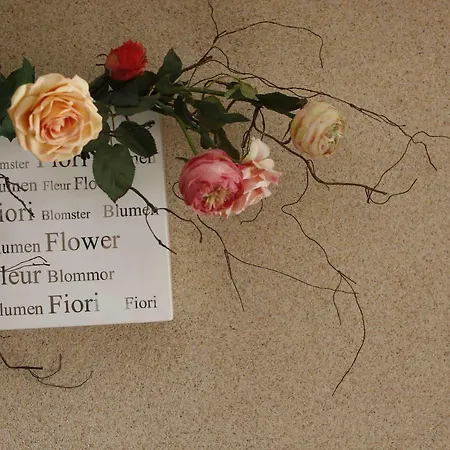 omster Fiori
lumen Fleur Flo
iori Blomster Blumen
lumen Flower
leur Blommor
lumen Fiori Fiori